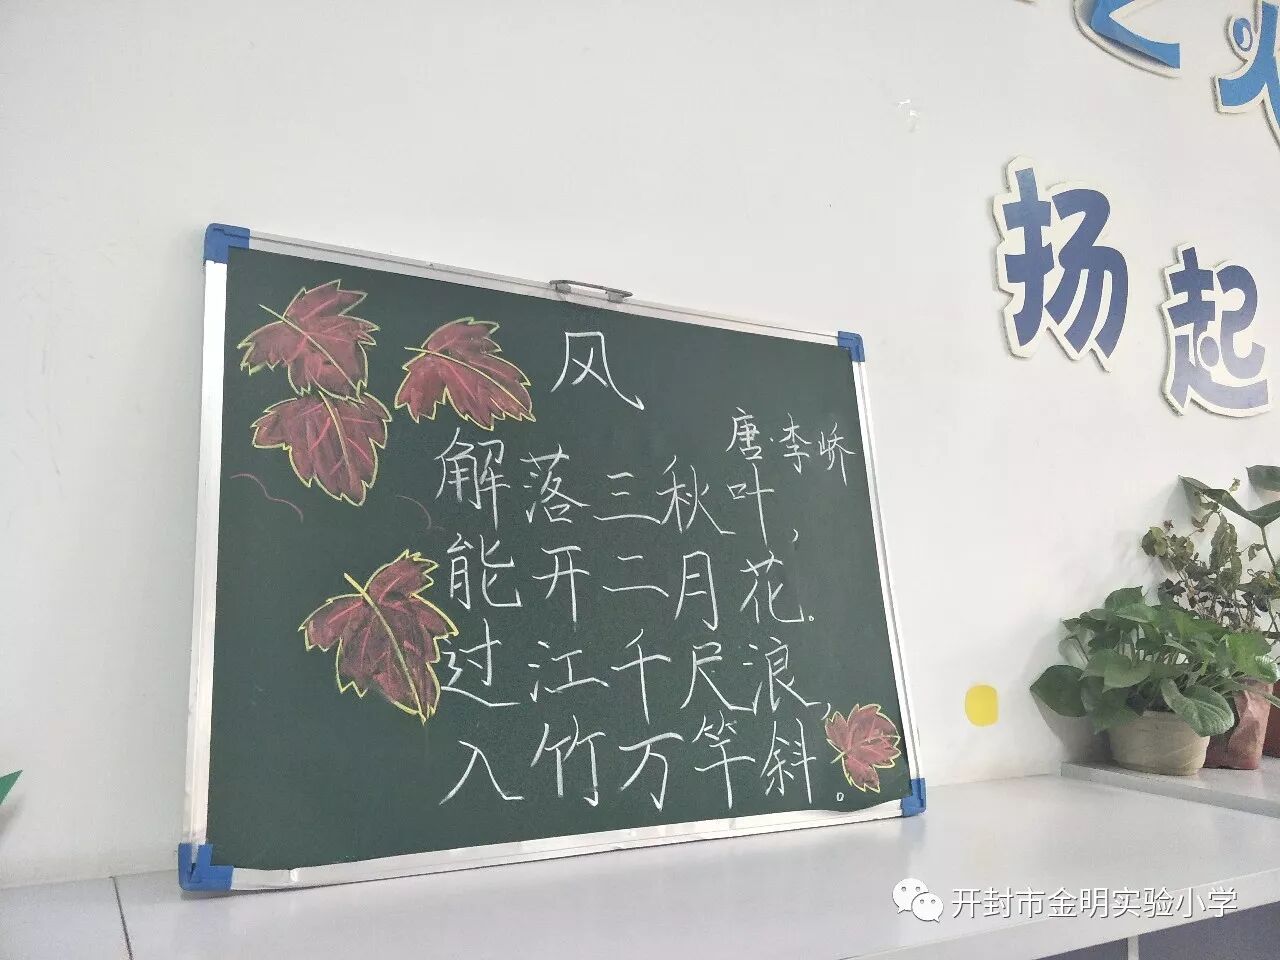 风
唐·李峤
解落三秋叶，
能开二月花。
过江千尺浪，
入竹万竿斜。
扬起
开封市金明实验小学